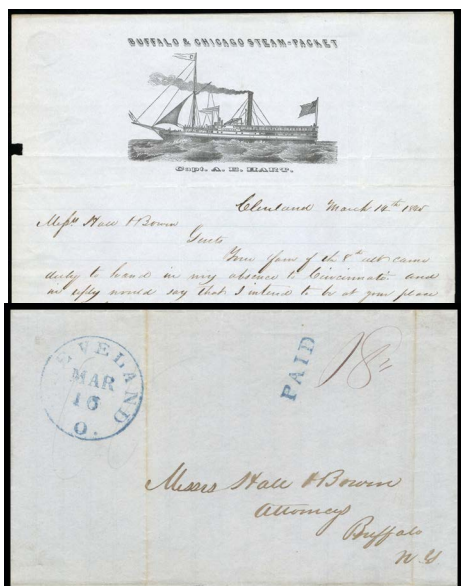 BUFFALO & CHICAGO STEAM-PACKET
Capt. A. E. HART.
Cleveland March 12th
Messrs Hall & Bowen
Gents
Your favr of the 8th ult came
duly to hand in my absence to Cincinnati and
in reply would say that I intend to be at your place
CLEVELAND
MAR
16
O.
PAID
18
Messrs Hall & Bowen
Attorneys
Buffalo
N.Y